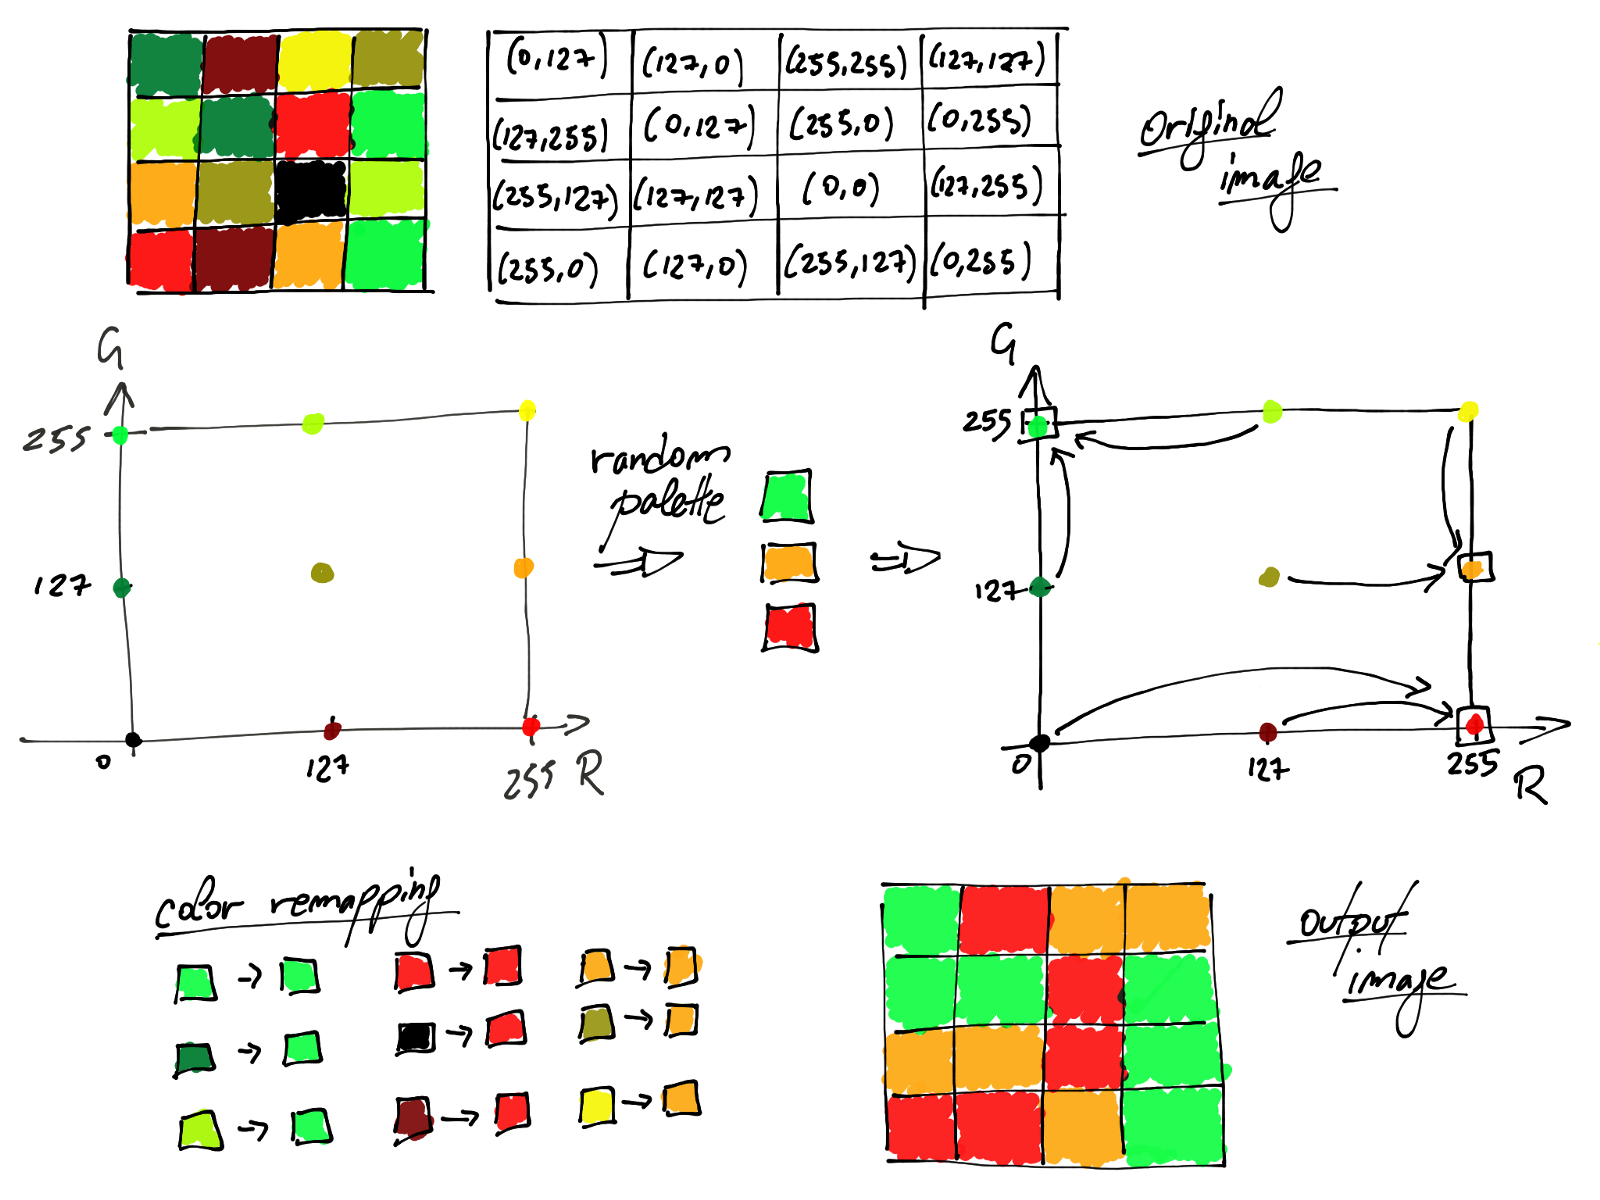 (0,127) (127,0) (255,255) (127,127)
(127,255) (0,127) (255,0) (0,255)
(255,127) (127,127) (0,0) (127,255)
(255,0) (127,0) (255,127) (0,255)
original
image
G
255
127
0
127
255
R
random
palette
G
255
127
0
127
255
R
color remapping
output
image